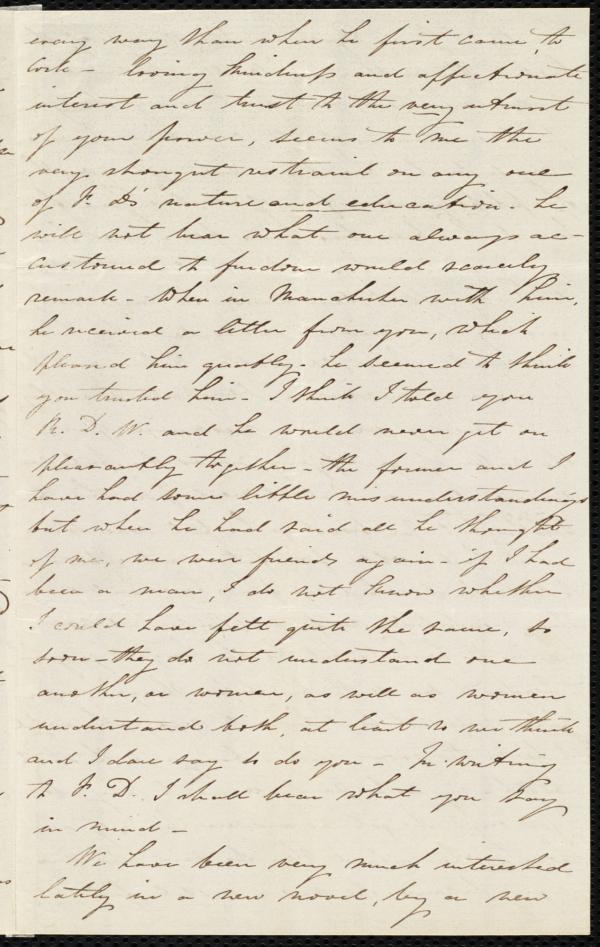 every way than when he first came to
Cork – loving kindness and affectionate
interest and trust to the very utmost
of your power, seems to me the
very strongest restraint on any one
of F. D's nature and education. he
will not bear what one always ac-
customed to freedom would scarcely
remark – When in Manchester with him,
he received a letter from you, which
pleased him greatly. he seemed to think
you trusted him – I think I told you
R. D. W. and he would never get on
pleasantly together – the former and I
have had some little misunderstandings
but when he had said all he thought
of me, we were friends again – if I had
been a man, I do not know whether
I could have felt quite the same, so
soon – they do not understand one
another, or women, as well as women
understand both, at least so we think
and I dare say so do you – In writing
to F. D. I shall bear what you say
in mind –
We have been very much interested
lately in a new novel, by a new